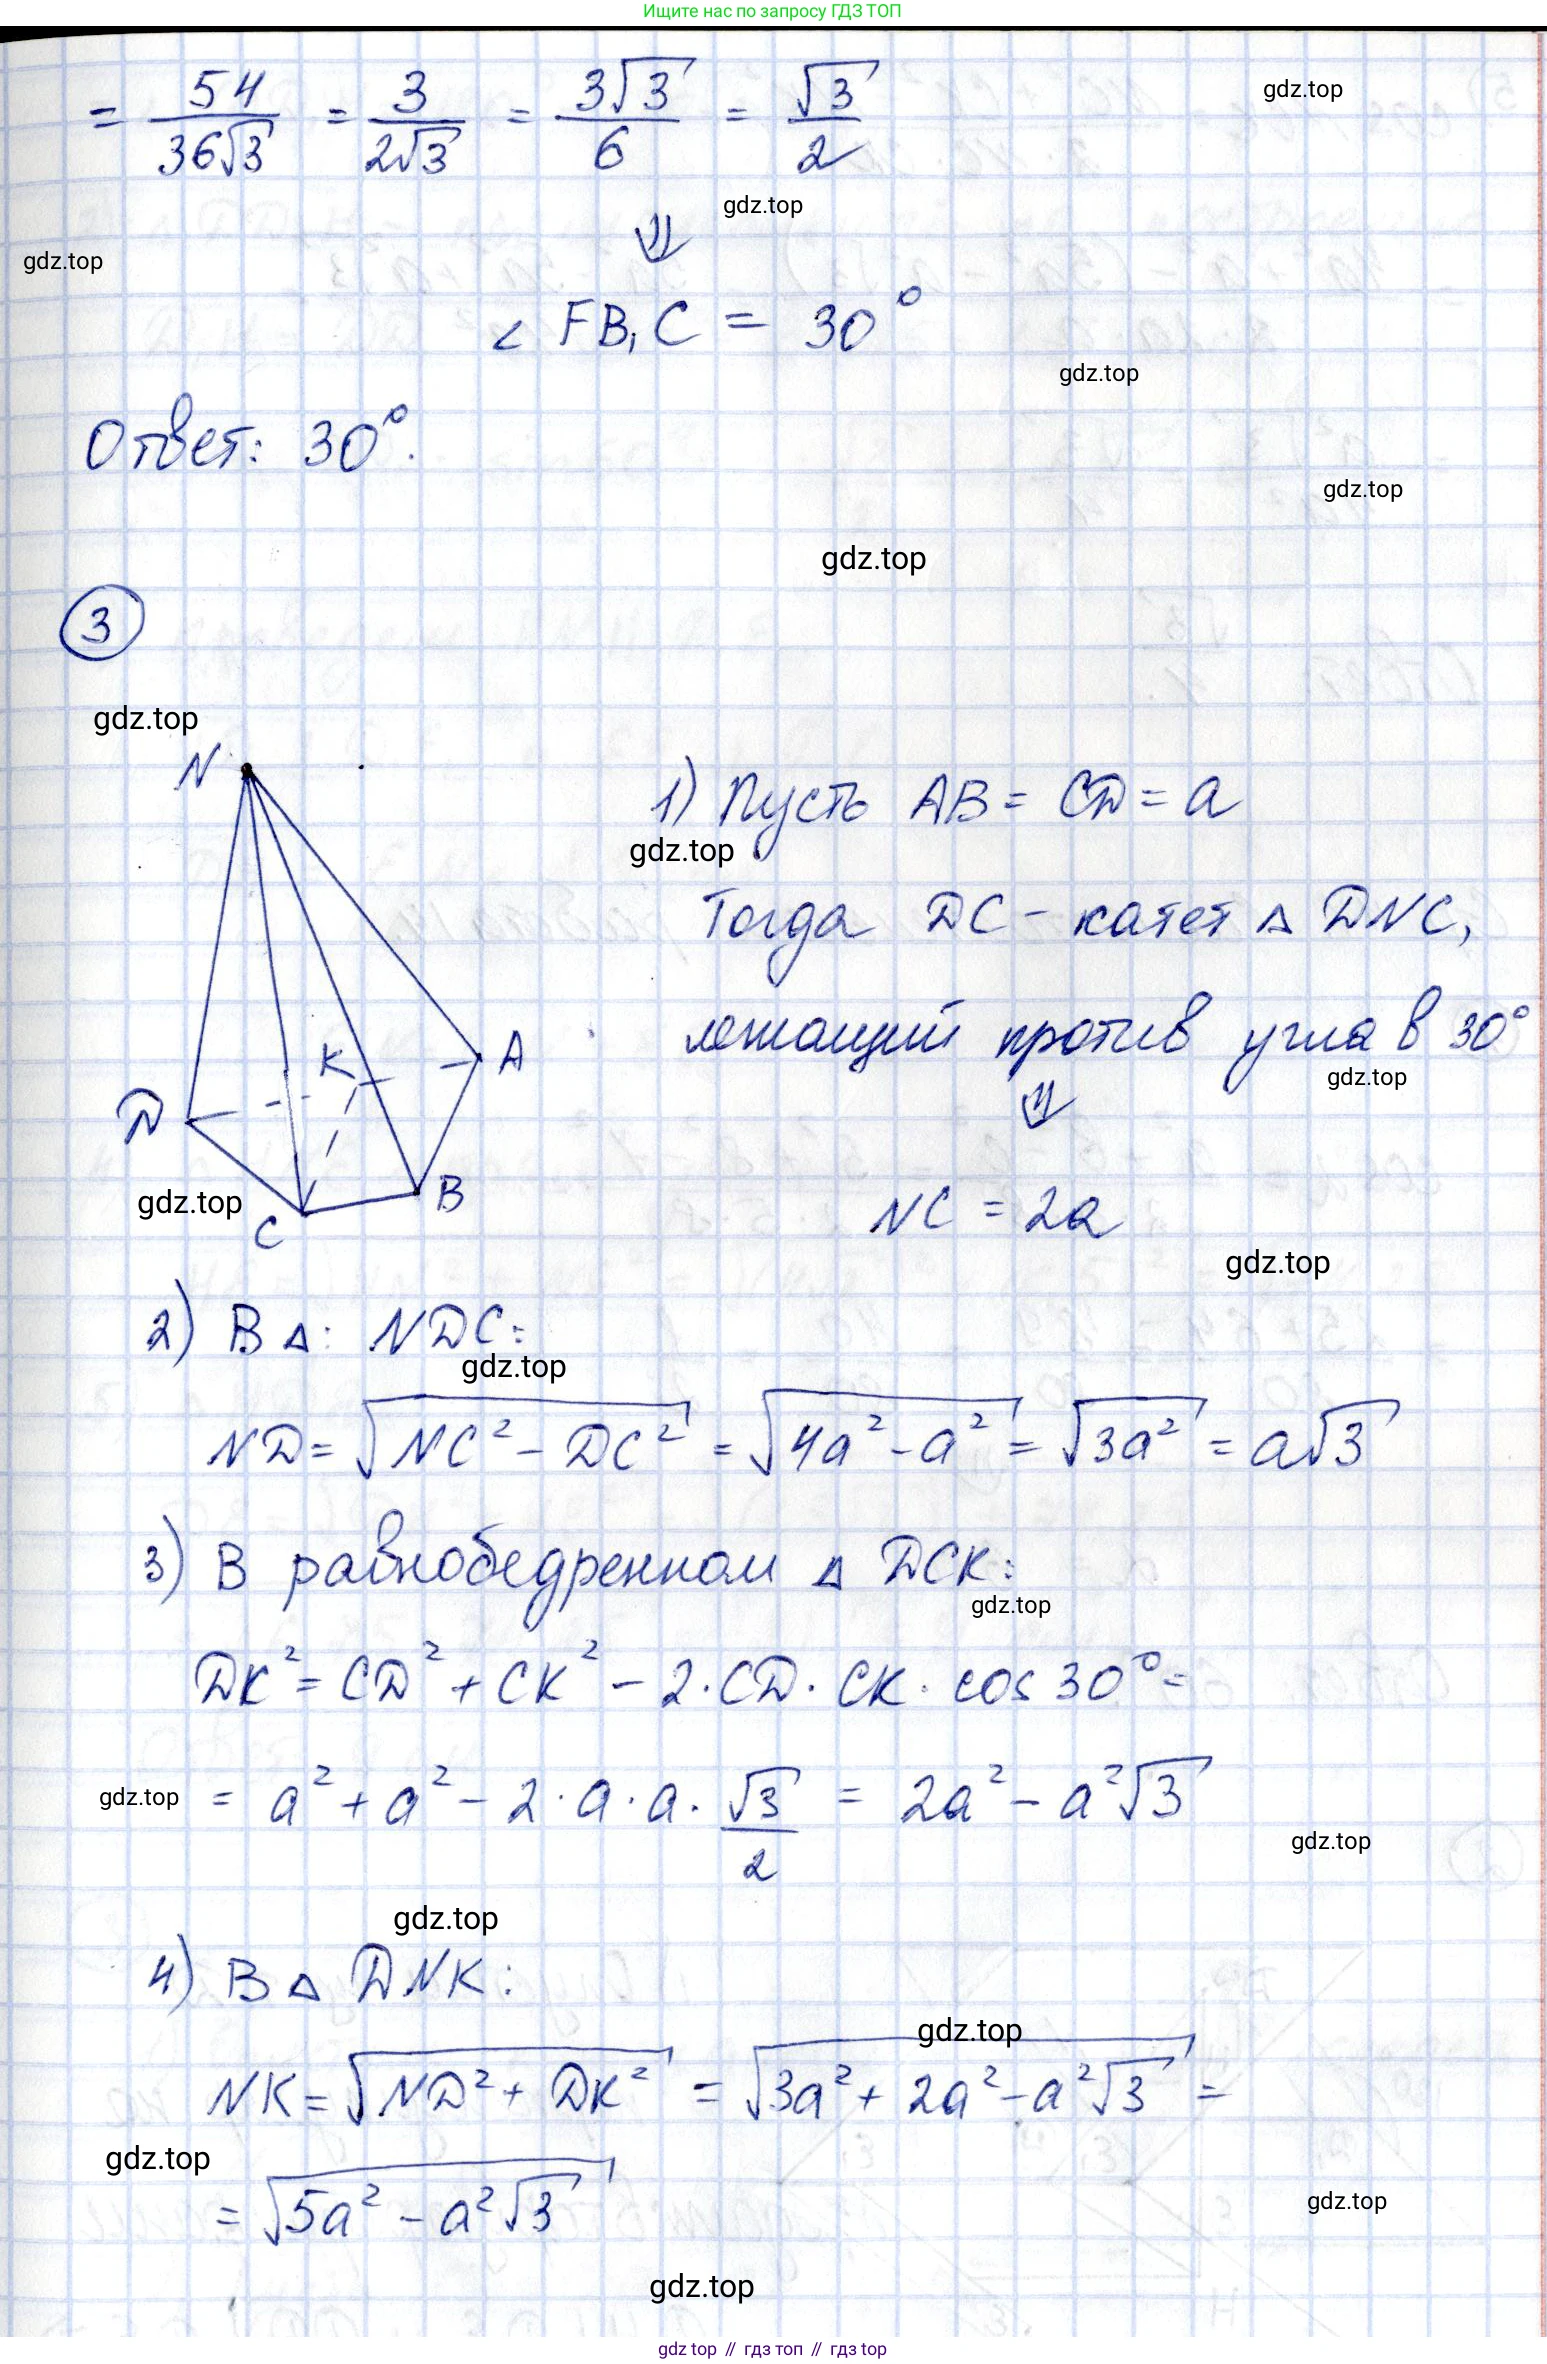 Ищите нас по запросу ГДЗ ТОП
= 54/36√3 = 3/2√3 = 3√3/6 = √3/2
gdz.top
gdz.top
gdz.top
⇓
∠ FB₁C = 30°
gdz.top
Ответ: 30°.
gdz.top
gdz.top
3
gdz.top
N
A
K
D
B
C
1) Пусть AB = CD = a
gdz.top
Тогда DC - катет △ DNC,
лежащий против угла в 30°
gdz.top
⇓
gdz.top
NC = 2a
gdz.top
2) В △: NDC:
gdz.top
ND = √(NC² - DC²) = √(4a² - a²) = √(3a²) = a√3
3) В равнобедренном △ DCK:
gdz.top
DK² = CD² + CK² - 2·CD·CK·cos 30° =
gdz.top
= a² + a² - 2·a·a·√3/2 = 2a² - a²√3
gdz.top
gdz.top
4) В △ DNK:
gdz.top
NK = √(ND² + DK²) = √(3a² + 2a² - a²√3) =
gdz.top
= √(5a² - a²√3)
gdz.top
gdz.top
gdz top // гдз топ // гдз top